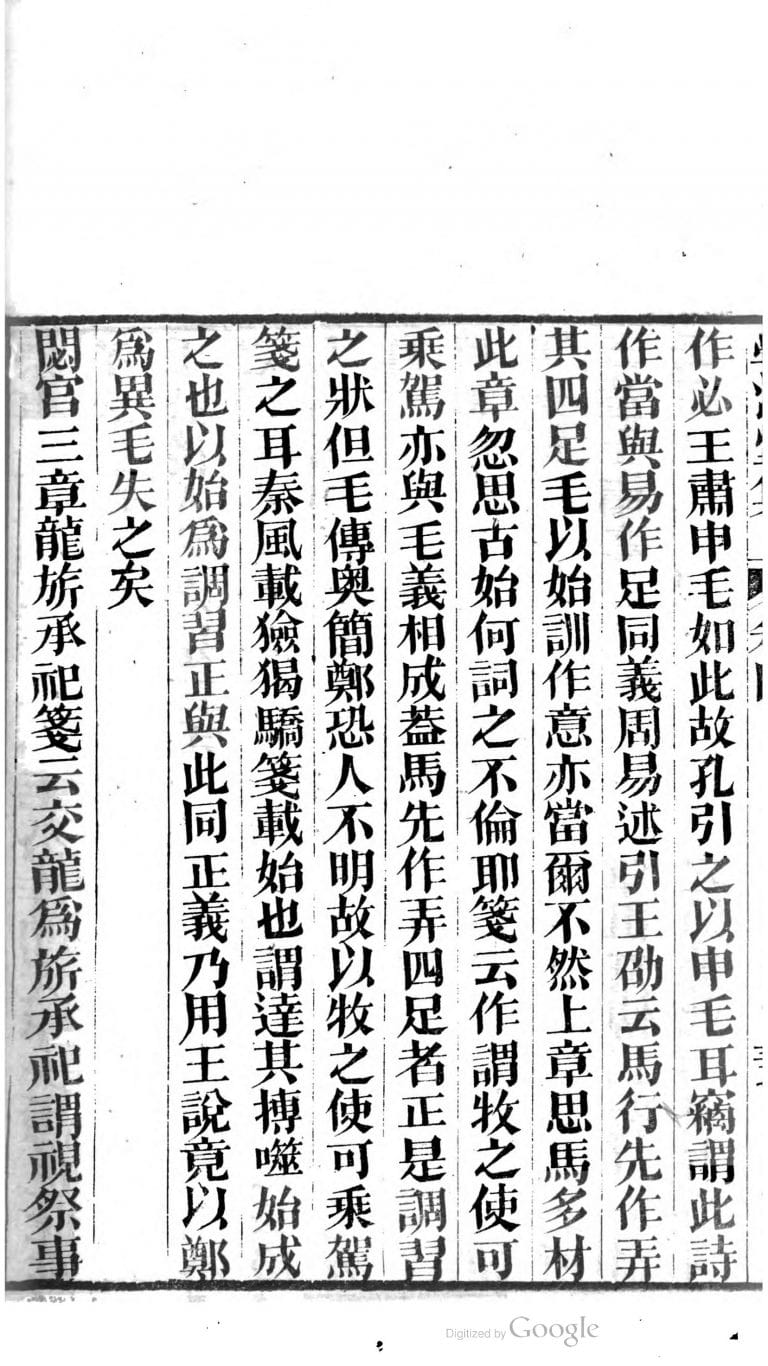 作必王肅申毛如此故孔引之以申毛耳竊謂此詩
作當與易作足同義周易述引王劭云馬行先作弄
其四足毛以始訓作意亦當爾不然上章思馬多材
此章忽思古始何詞之不倫耶箋云作謂牧之使可
乘駕亦與毛義相成葢馬先作弄四足者正是調習
之狀但毛傳奥簡鄭恐人不明故以牧之使可乘駕
箋之耳秦風載獫猲驕箋載始也謂達其搏噬始成
之也以始爲調習正與此同正義乃用王說竟以鄭
爲異毛失之矣
閟官三章龍旂承祀箋云交龍爲旂承祀謂視祭事
Digitized by Google